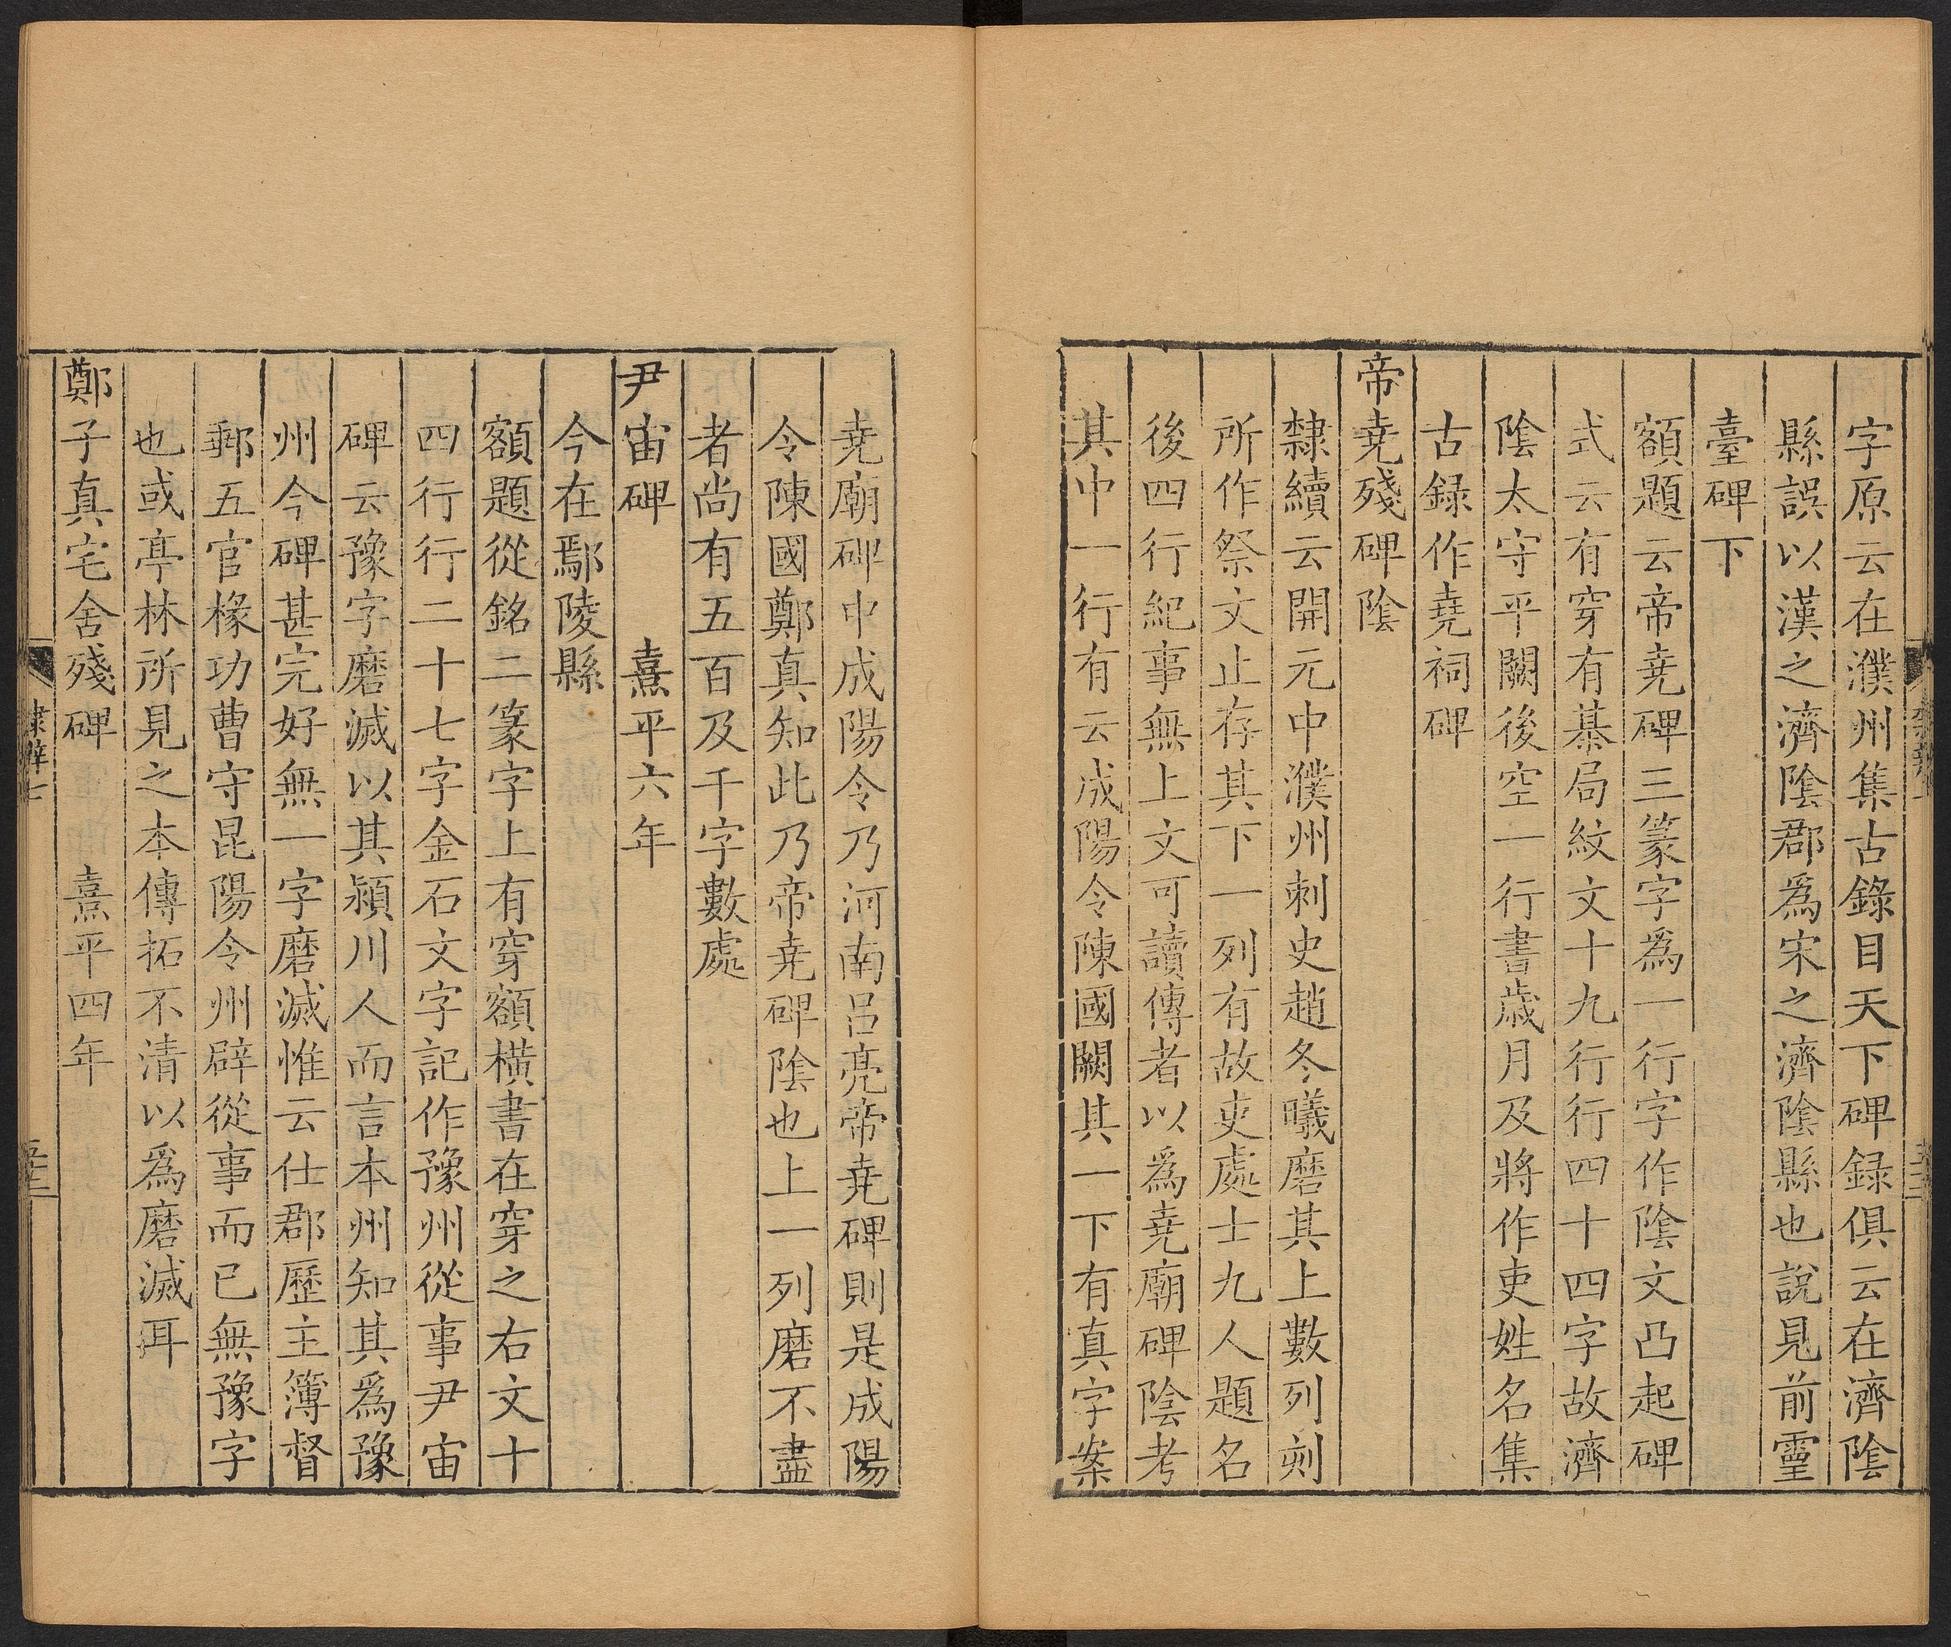 字原云在濮州集古錄目天下碑録俱云在濟陰
縣誤以漢之濟陰郡爲宋之濟陰縣也說見前靈
臺碑下
額題云帝尭碑三篆字爲一行字作陰文凸起碑
式云有穿有綦局紋文十九行行四十四字故濟
陰太守平闕後空一行書歲月及將作吏姓名集
古録作堯祠碑
帝尭殘碑陰
隸續云開元中濮州刺史趙冬曦磨其上數列刻
所作祭文止存其下一列有故吏處士九人題名
後四行紀事無上文可讀傳者以爲堯廟碑陰考
其中一行有云成陽令陳國闕其一下有真字案
尭廟碑中成陽令乃河南呂亮帝尭碑則是成陽
令陳國鄭真知此乃帝尭碑陰也上一列磨不盡
者尚有五百及千字數處
尹宙碑 熹平六年
今在鄢陵縣
額題從銘二篆字上有穿額橫書在穿之右文十
四行行二十七字金石文字記作豫州從事尹宙
碑云豫字磨滅以其潁川人而言本州知其爲豫
州今碑甚完好無一字磨滅惟云仕郡歷主簿督
郵五官椽功曹守昆陽令州辟從事而已無豫字
也或亭林所見之本傳拓不清以爲磨滅耳
鄭子真宅舍殘碑 熹平四年